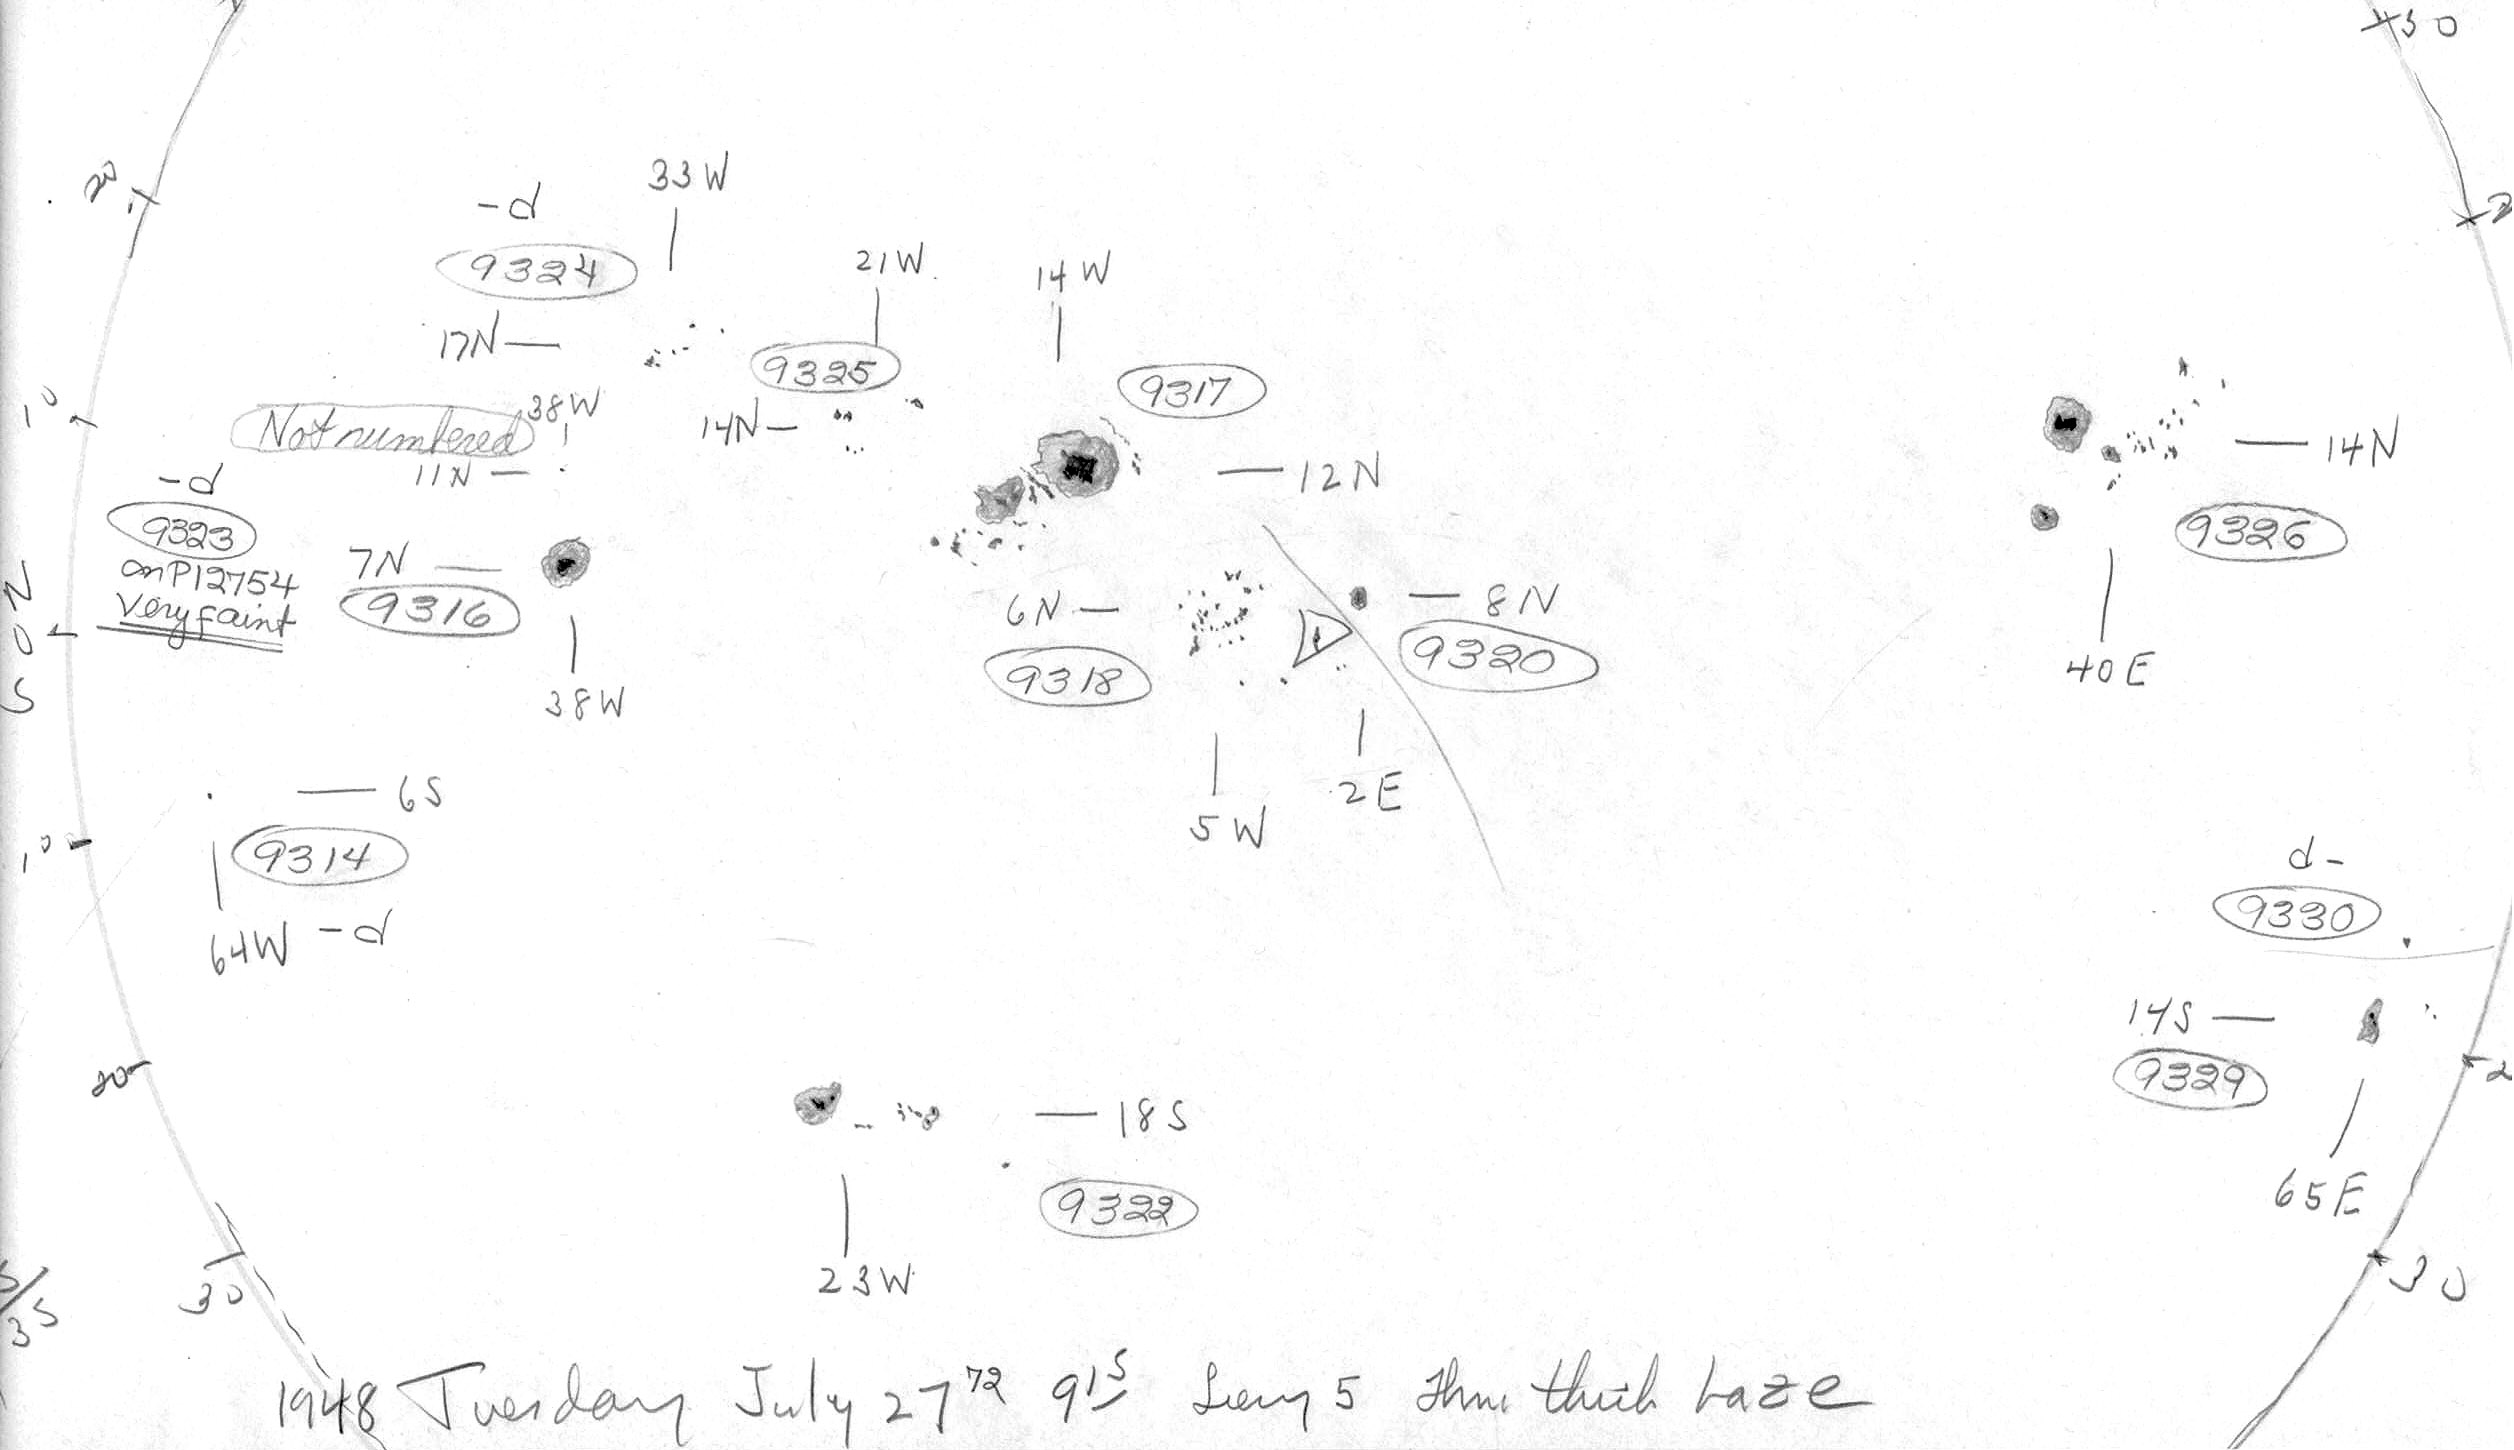 30
20
33W
-d
9324
21W
14W
17N
9325
9317
10
Not numbered
38W
14N
11N
12N
14N
-d
9323
on P12754
very faint
7N
9316
6N
8N
9326
N
0
S
9318
9320
38W
40E
2E
5W
6S
9314
10
64W -d
d-
9330
14S
9329
20
18S
9322
65E
23W
30
30
35
1948 Tuesday July 27 72 9 15 Seeing 5 thru thick haze